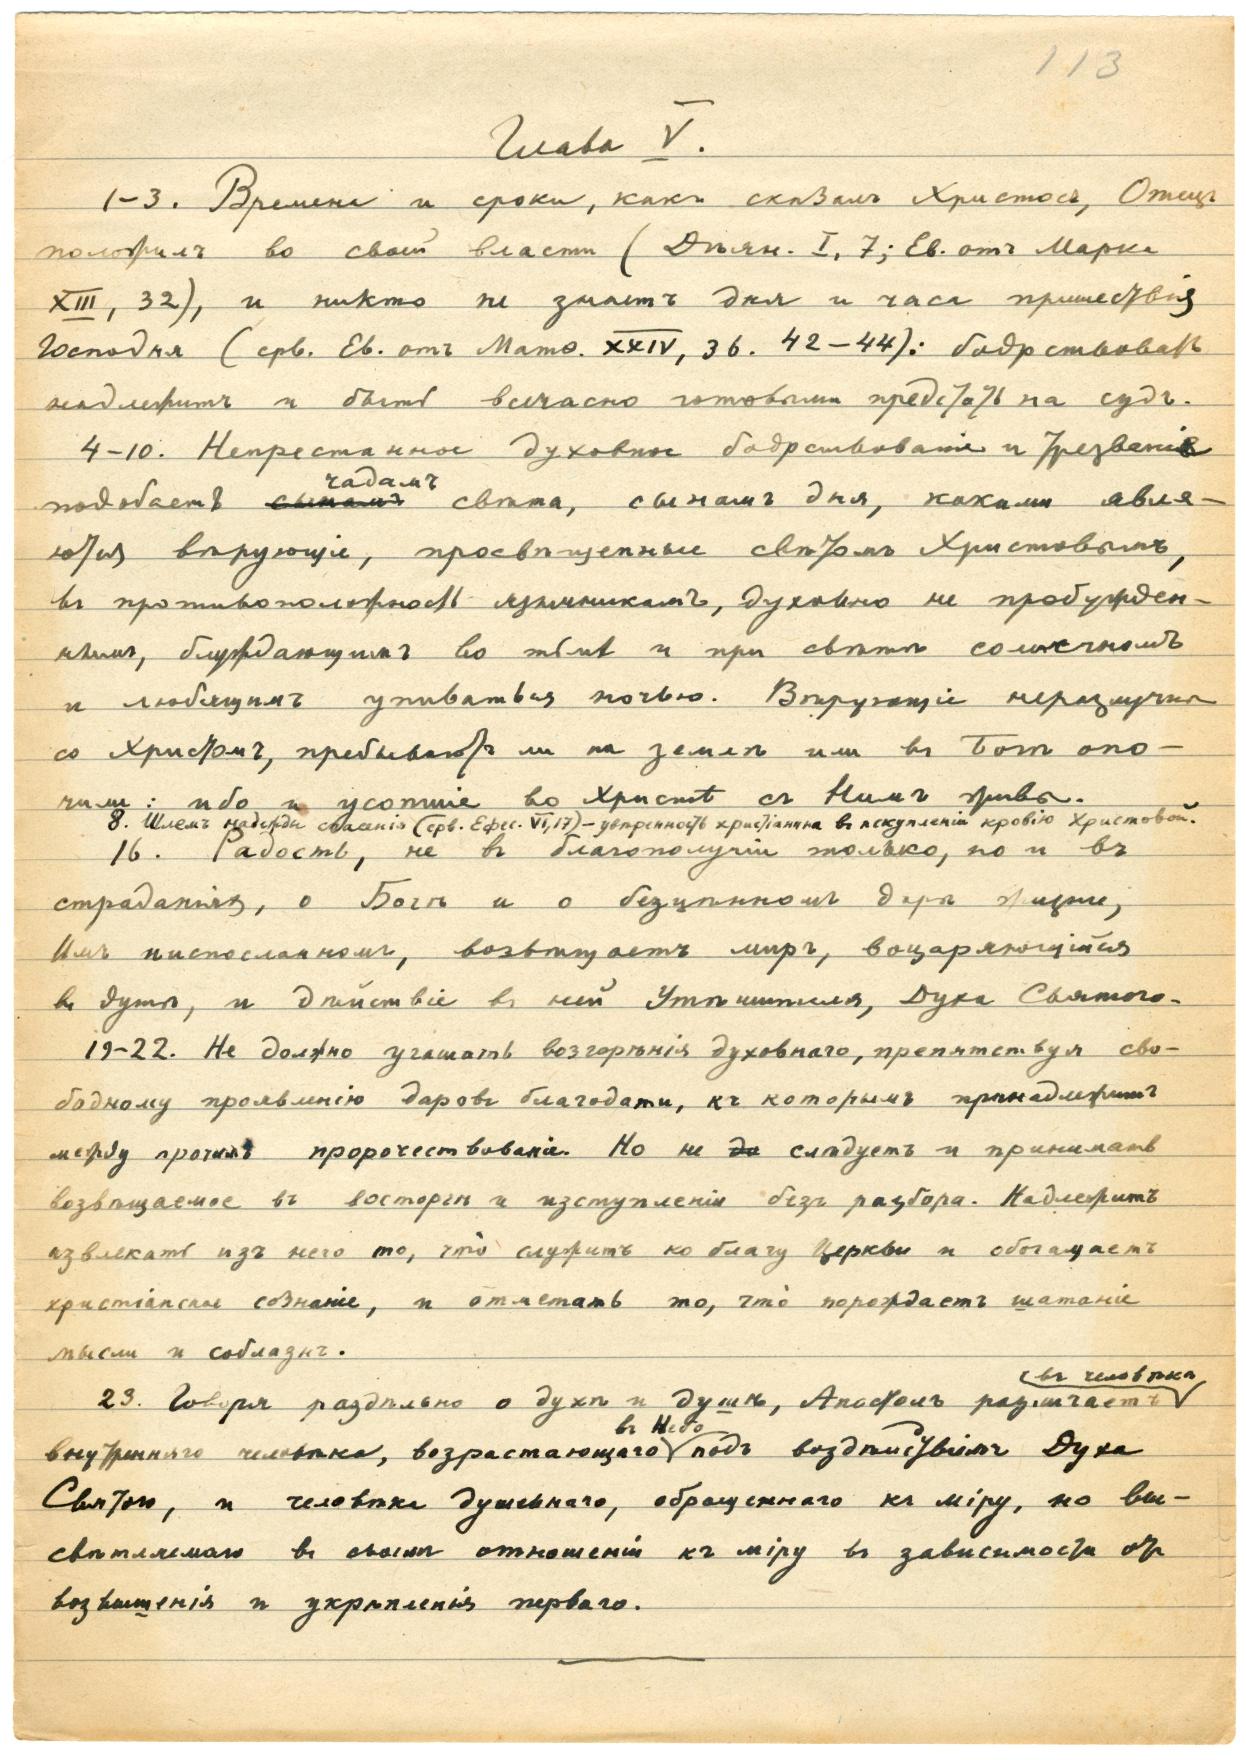 113
Глава V.
1-3. Времена и сроки, какъ сказалъ Христосъ, Отецъ
положилъ во своей власти (Дѣян. I, 7; Ев. отъ Марка
XIII, 32), и никто не знаетъ дня и часа пришествія
Господня (срв. Ев. отъ Матѳ. XXIV, 36. 42-44): бодрствовать
надлежитъ и быть всечасно готовыми предстать на судъ.
4-10. Непрестанное духовное бодрствованіе и трезвеніе
чадамъ
подобаетъ сынамъ свѣта, сынамъ дня, какими явля-
ются вѣрующіе, просвѣщенные свѣтомъ Христовымъ,
въ противоположность язычникамъ, духовно не пробужден-
нымъ, блуждающимъ во тьмѣ и при свѣтѣ солнечномъ
и любящимъ упиваться ночью. Вѣрующіе неразлучны
со Христомъ, пребываютъ ли на землѣ или въ Богѣ опо-
чили: ибо и усопшіе во Христѣ съ Нимъ живы.
8. Шлемъ надежды спасенія (срв. Ефес. VI, 17) – увѣренность христіанина въ искупленіи кровію Христовой.
16. Радость, не въ благополучіи только, но и въ
страданіяхъ, о Богѣ и о безцѣнномъ дарѣ жизни,
Имъ ниспосланномъ, возвѣщаетъ миръ, воцаряющійся
въ душѣ, и дѣйствіе въ ней Утѣшителя, Духа Святого.
19-22. Не должно угашать возгорѣнія духовнаго, препятствуя сво-
бодному проявленію даровъ благодати, къ которымъ принадлежитъ
между прочимъ пророчествованіе. Но не до слѣдуетъ и принимать
возвѣщаемое въ восторгѣ и изступленіи безъ разбора. Надлежитъ
извлекать изъ него то, что́ служитъ ко благу Церкви и обогащаетъ
христіанское сознаніе, и отметать то, что́ порождаетъ шатаніе
мысли и соблазнъ.
въ человѣкѣ
23. Говоря раздѣльно о духѣ и душѣ, Апостолъ различаетъ
въ Небо
внутренняго человѣка, возрастающаго подъ воздѣйствіемъ Духа
Святого, и человѣка душевнаго, обращеннаго къ міру, но вы-
свѣтляемаго въ своемъ отношеніи къ міру въ зависимости отъ
возвышенія и укрѣпленія перваго.